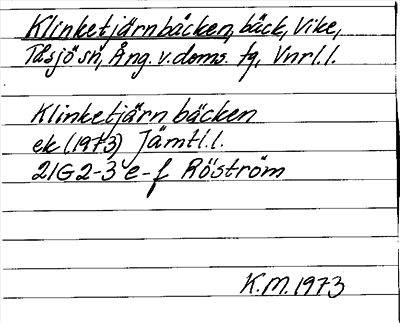 Klinketjärnbäcken, bäck, Vike,
Tåsjö sn, Ång. v. doms. fg, Vnrl.l.
Klinketjärnbäcken
ek (1973) Jämtl.l.
21G2-3 e-f Röström
K.M. 1973